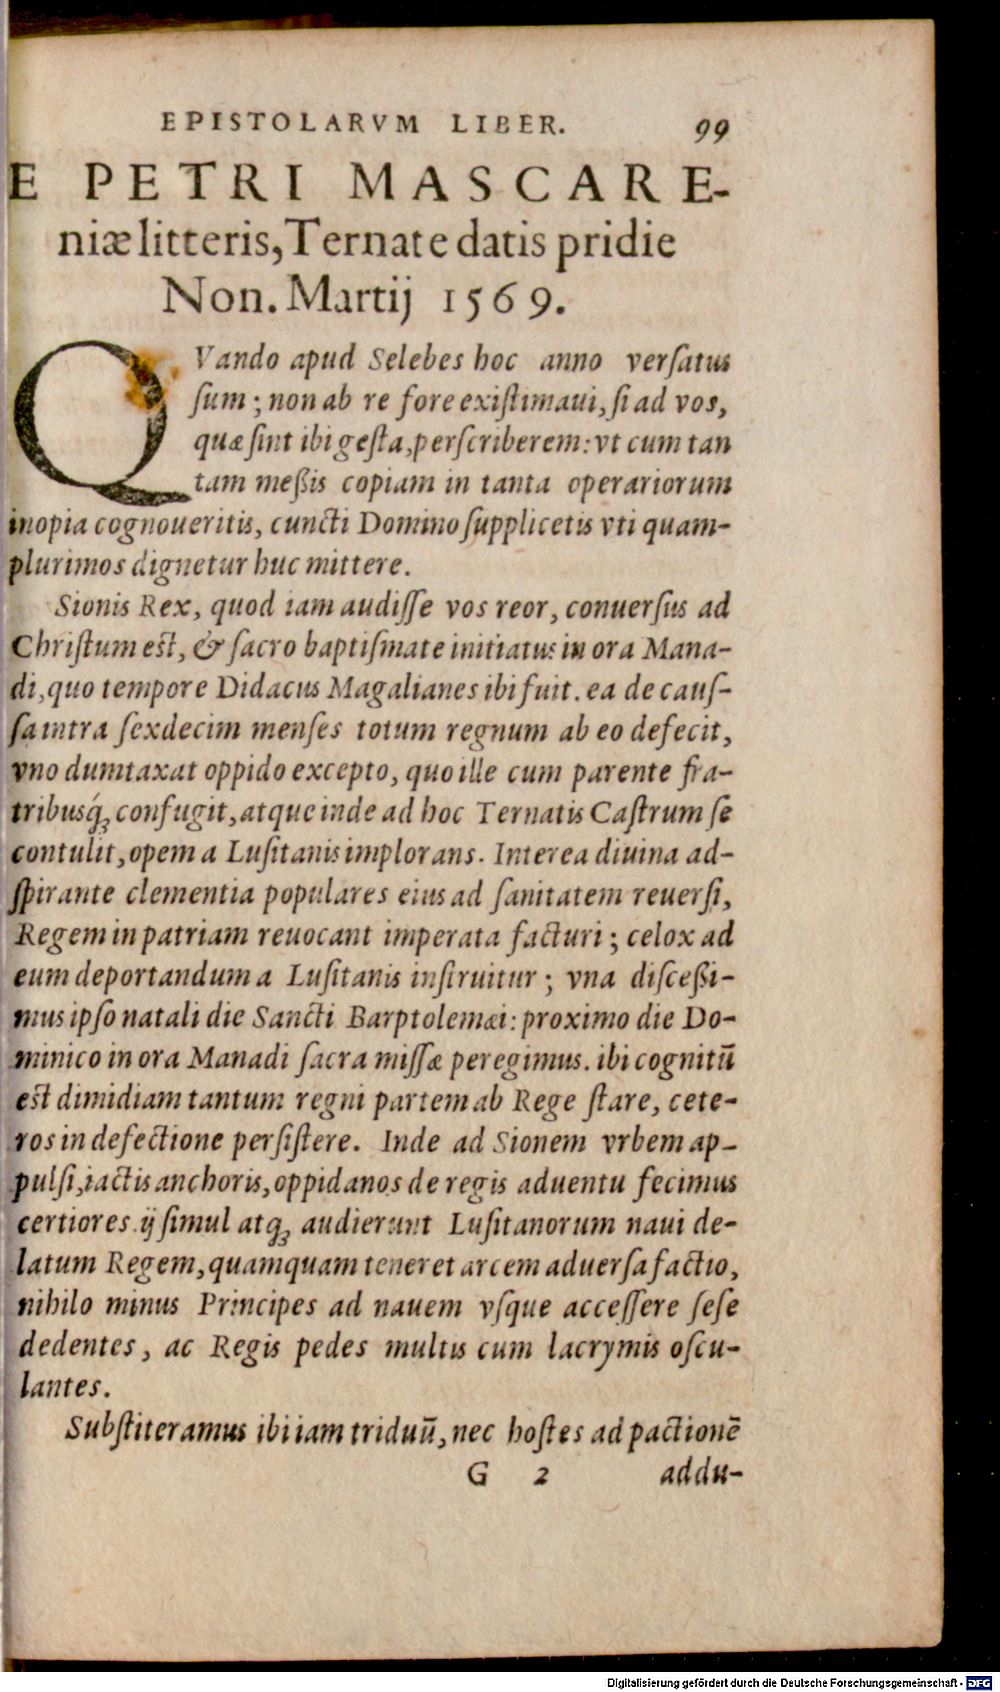 EPISTOLARVM LIBER. 99
E PETRI MASCARE-
niæ litteris, Ternate datis pridie
Non. Martij 1569.
QVando apud Selebes hoc anno versatus
sum; non ab re fore existimaui, si ad vos,
quæ sint ibi gesta, perscriberem: vt cum tan
tam meßis copiam in tanta operariorum
inopia cognoueritis, cuncti Domino supplicetis vti quam-
plurimos dignetur huc mittere.
Sionis Rex, quod iam audisse vos reor, conuersus ad
Christum est, & sacro baptismate initiatus in ora Mana-
di, quo tempore Didacus Magalianes ibi fuit. ea de caus-
sa intra sexdecim menses totum regnum ab eo defecit,
vno dumtaxat oppido excepto, quo ille cum parente fra-
tribusq́; confugit, atque inde ad hoc Ternatis Castrum se
contulit, opem a Lusitanis implorans. Interea diuina ad-
spirante clementia populares eius ad sanitatem reuersi,
Regem in patriam reuocant imperata facturi; celox ad
eum deportandum a Lusitanis insiruitur; vna disceßi-
mus ipso natali die Sancti Barptolemæi: proximo die Do-
minico in ora Manadi sacra missæ peregimus. ibi cognitū
est dimidiam tantum regni partem ab Rege stare, cete-
ros in defectione persistere. Inde ad Sionem vrbem ap-
pulsi, iactis anchoris, oppidanos de regis aduentu fecimus
certiores. ij simul atq; audierunt Lusitanorum naui de-
latum Regem, quamquam teneret arcem aduersa factio,
nihilo minus Principes ad nauem vsque accessere sese
dedentes, ac Regis pedes multis cum lacrymis oscu-
lantes.
Substiteramus ibi iam triduū, nec hostes ad pactionē
G 2 addu-
Digitalisierung gefördert durch die Deutsche Forschungsgemeinschaft - DFG